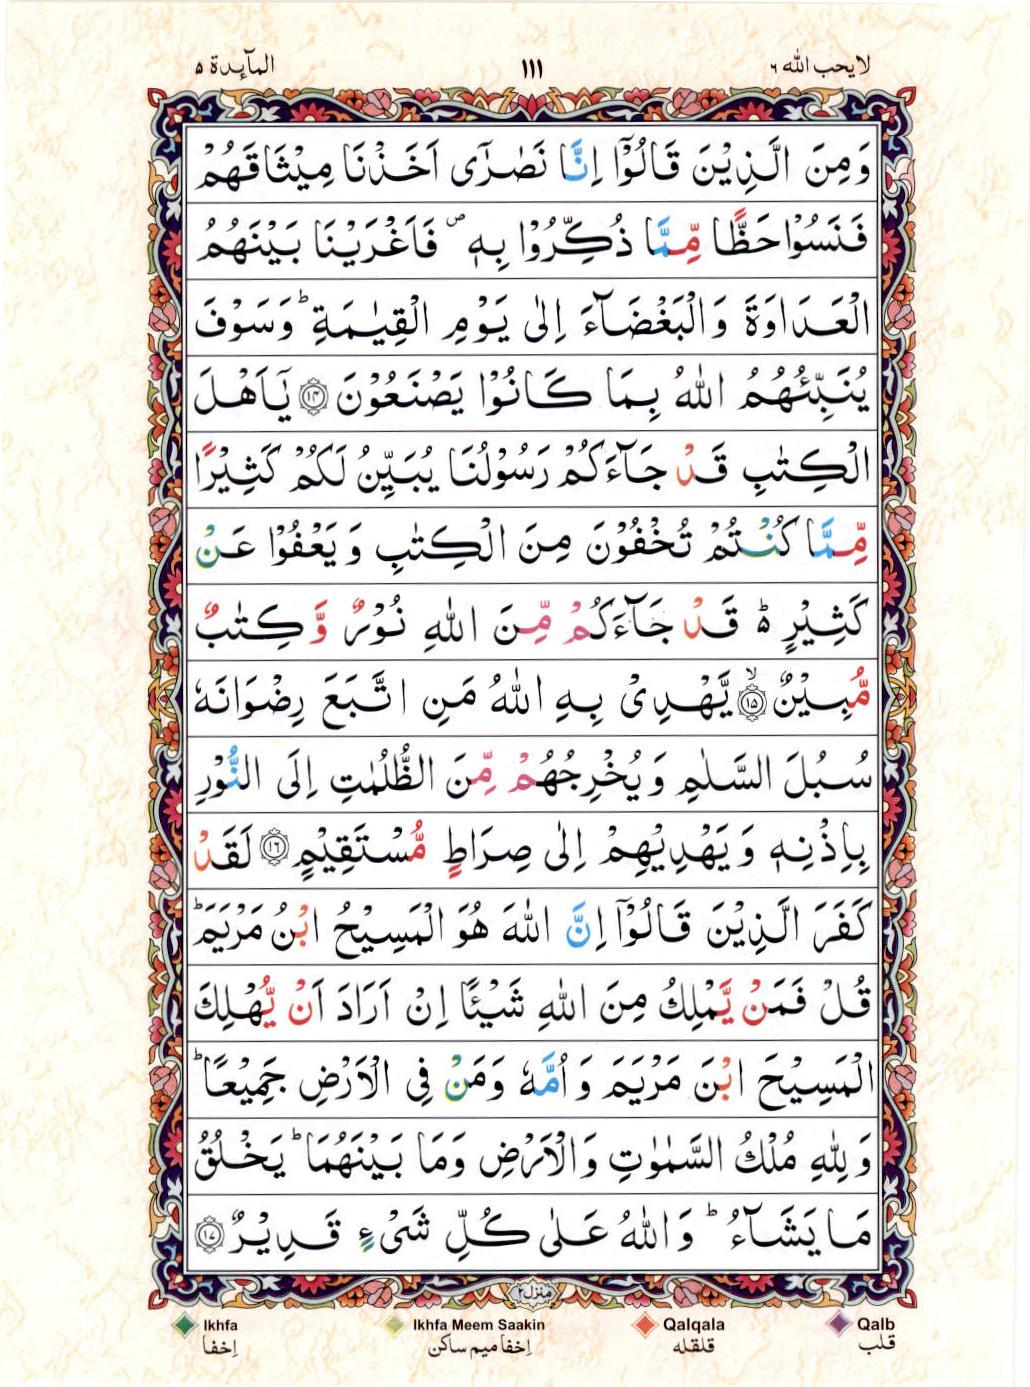 المآئدة ٥
١١١
لا يحب الله ٦
وَمِنَ الَّذِيْنَ قَالُوْٓا اِنَّا نَصٰرٰٓى اَخَذْنَا مِيْثَاقَهُمْ
فَنَسُوْا حَظًّا مِّمَّا ذُكِّرُوْا بِهٖ ۪ فَاَغْرَيْنَا بَيْنَهُمُ
الْعَدَاوَةَ وَالْبَغْضَآءَ اِلٰى يَوْمِ الْقِيٰمَةِ ؕ وَسَوْفَ
يُنَبِّئُهُمُ اللّٰهُ بِمَا كَانُوْا يَصْنَعُوْنَ ﴿۱۴﴾ يٰٓاَهْلَ
الْكِتٰبِ قَدْ جَآءَكُمْ رَسُوْلُنَا يُبَيِّنُ لَكُمْ كَثِيْرًا
مِّمَّا كُنْتُمْ تُخْفُوْنَ مِنَ الْكِتٰبِ وَيَعْفُوْا عَنْ
كَثِيْرٍ ؕ۬ قَدْ جَآءَكُمْ مِّنَ اللّٰهِ نُوْرٌ وَّكِتٰبٌ
مُّبِيْنٌ ۙ﴿۱۵﴾ يَّهْدِىْ بِهِ اللّٰهُ مَنِ اتَّبَعَ رِضْوَانَهٗ
سُبُلَ السَّلٰمِ وَيُخْرِجُهُمْ مِّنَ الظُّلُمٰتِ اِلَى النُّوْرِ
بِاِذْنِهٖ وَيَهْدِيْهِمْ اِلٰى صِرَاطٍ مُّسْتَقِيْمٍ ﴿۱۶﴾ لَقَدْ
كَفَرَ الَّذِيْنَ قَالُوْٓا اِنَّ اللّٰهَ هُوَ الْمَسِيْحُ ابْنُ مَرْيَمَ ؕ
قُلْ فَمَنْ يَّمْلِكُ مِنَ اللّٰهِ شَيْـًٔا اِنْ اَرَادَ اَنْ يُّهْلِكَ
الْمَسِيْحَ ابْنَ مَرْيَمَ وَاُمَّهٗ وَمَنْ فِى الْاَرْضِ جَمِيْعًا ؕ
وَلِلّٰهِ مُلْكُ السَّمٰوٰتِ وَالْاَرْضِ وَمَا بَيْنَهُمَا ؕ يَخْلُقُ
مَا يَشَآءُ ؕ وَاللّٰهُ عَلٰى كُلِّ شَىْءٍ قَدِيْرٌ ﴿۱۷﴾
منزل ٢
Ikhfa
Ikhfa Meem Saakin
Qalqala
Qalb
اِخفا
اِخفا میم ساکن
قلقله
قلب